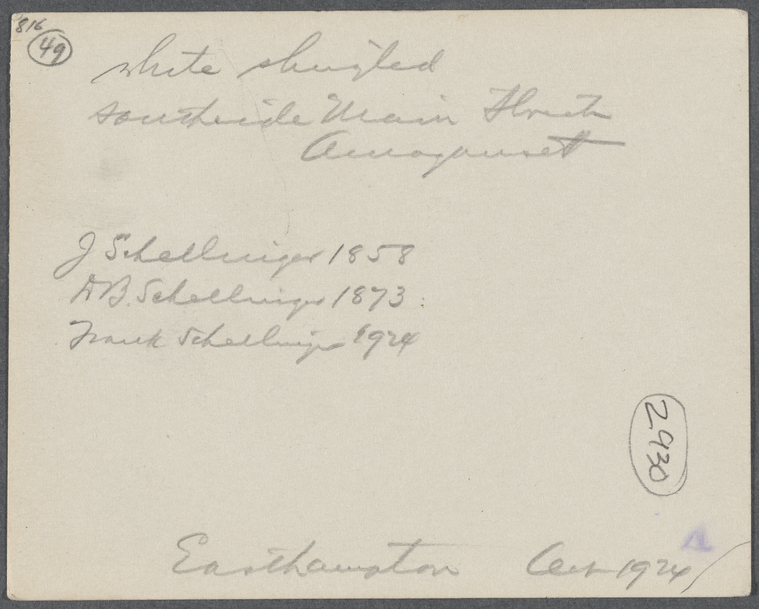 816
49
white shingled
southside Main Street
Amagansett
J Schellinger 1858
D B. Schellinger 1873.
Frank Schellinger 1924
2930
Easthampton 1924